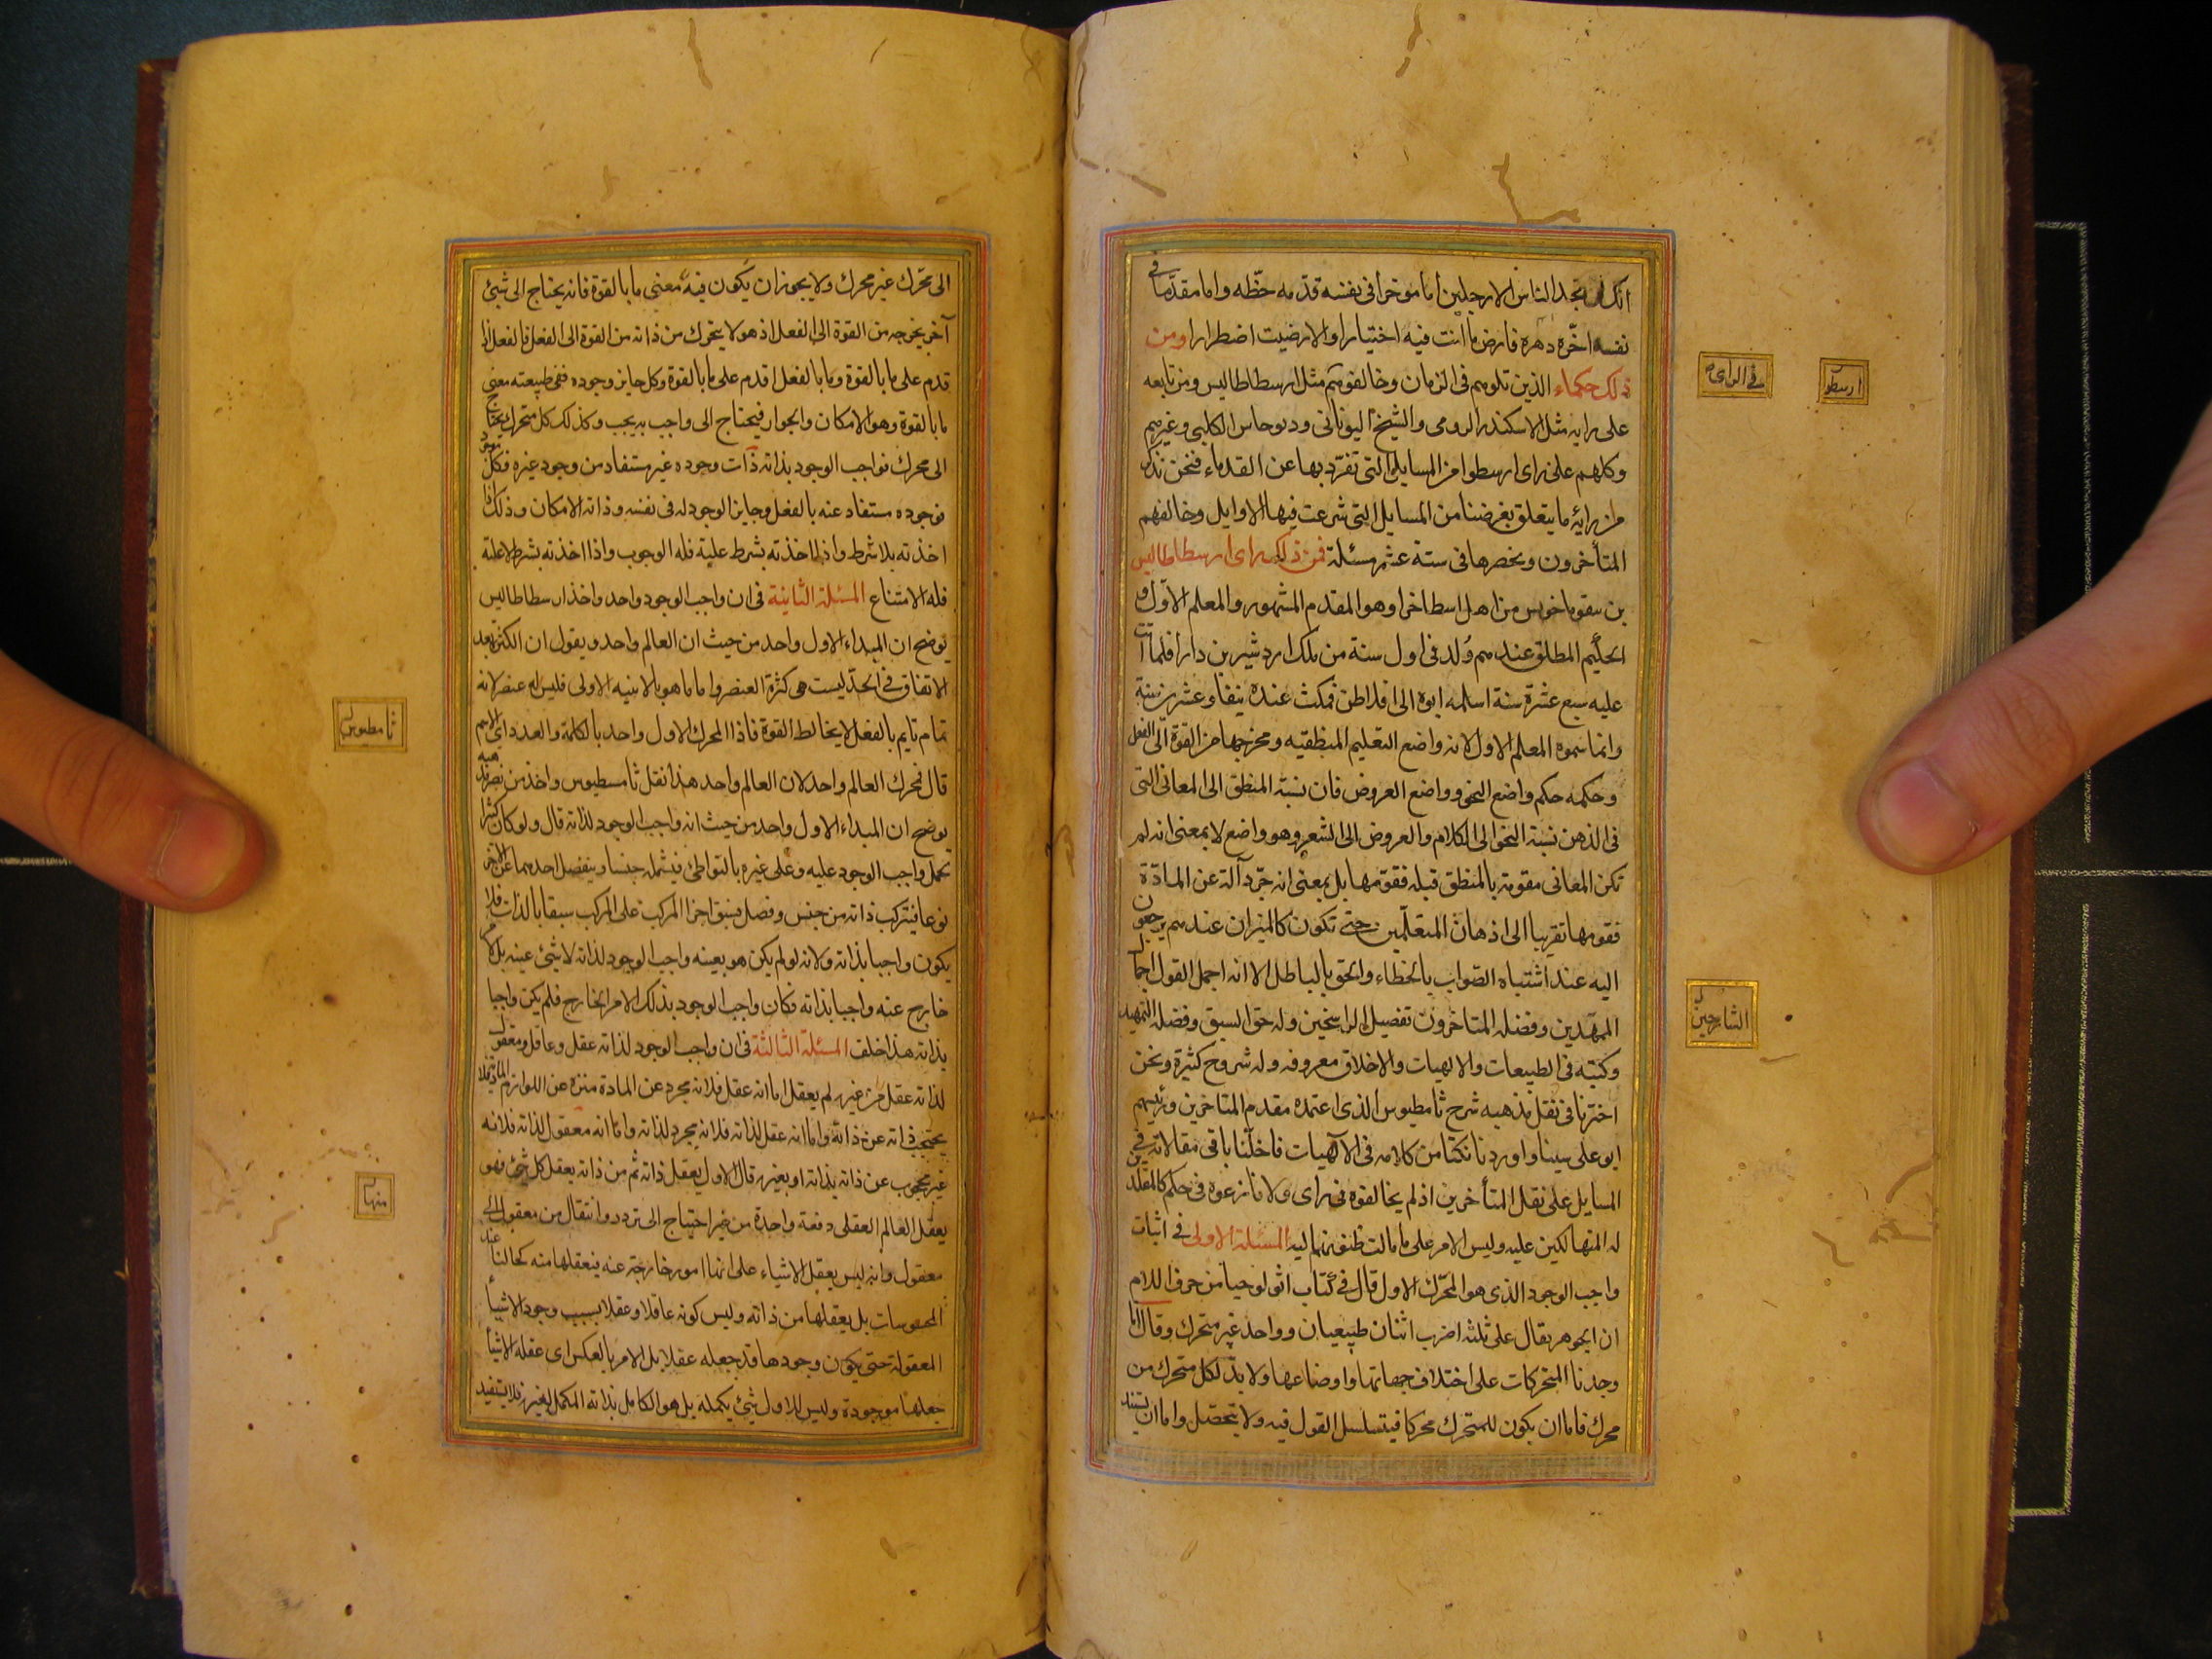 انك لن تجد الناس الا رجلين اما موخرا فى نفسه قدّمه حظّه واما مقدّما فى
نفسه اخّره دهره فارض ما انت فيه اختيارا والا رضيت اضطرارا ومن
ذلك حكماء الذين تلوهم فى الزمان وخالفوهم مثل ارسطاطاليس ومن تابعه
على رايه مثل الاسكندر الرومى والشيخ اليونانى وديوجانس الكلبى وغيرهم
وكلهم على راى ارسطوا من المسايل التى تفرّد بها عن القدماء فنحن نذكر
من رايه ما يتعلق بغرضنا من المسايل التى شرعت فيها الاوايل وخالفهم
المتأخرون ونحصرها فى ستة عشر مسئلة فمن ذلك راى ارسطاطاليس
بن نيقوماخوس من اهل اسطاخرا وهو المقدم المشهور والمعلم الاوّل و
الحكيم المطلق عندهم وُلد فى اول سنة من ملك اردشير بن دارا فلما اتت
عليه سبع عشرة سنة اسلمه ابوه الى افلاطن فمكث عنده نيفا وعشرين سنة
وانما سموه المعلم الاول لانه واضع التعليم المنطقيه ومخرجها من القوة الى الفعل
وحكمه حكم واضع النحو وواضع العروض فان نسبة المنطق الى المعانى التى
فى الذهن نسبة النحو الى الكلام والعروض الى الشعر وهو واضع لا بمعنى انه لم
تكن المعانى مقومة بالمنطق قبله فقومها بل بمعنى انه جرّد آلة عن المادّة
فقومها تقريبا الى اذهان المتعلّمين حتى تكون كالميزان عندهم يرجعون
اليه عند اشتباه الصّواب بالخطاء والحق بالباطل الا انه اجمل القول اجمال
الممهّدين وفصله المتاخرون تفصيل الراسخين وله حق السبق وفضله التمهيد
وكتبه فى الطبيعات والالهيات والاخلاق معروفه وله شروح كثيرة ونحن
اخترنا فى نقل مذهبه شرح ثامطيوس الذى اعتمده مقدم المتاخرين ورئيسهم
ابو على سينا واوردنا نكتا من كلامه فى الالهيات فاخلّنا باقى مقالاته فى
المسايل على نقل المتأخرين اذ لم يخالفوه فى راى ولا نازعوه فى حكم كالمقلّدين
له المتهالكين عليه وليس الامر على ما مالت ظنونهم اليه المسئلة الاولى فى اثبات
واجب الوجود الذى هو المحرّك الاول قال فى كتاب اثولوجيا من حرف اللام
ان الجوهر يقال على ثلثه اضرب اثنان طبيعيان وواحد غير متحرك وقال انا
وجدنا المتحركات على اختلاف جهاتها واوضاعها ولا بدّ لكل متحرك من
محرك فاما ان يكون للمتحرك محركا فيتسلسل القول فيه ولا يتحصّل واما ان يستند
ارسطو
فى الراى
الشارحين
الى محّرك غير محرك ولا يجوز ان يكون فيه معنى ما بالقوة فانه يحتاج الى شيئ
آخر يخرجه من القوة الى الفعل اذ هو لا يتحرك من ذاته من القوة الى الفعل فالفعل اذا
قدم على ما بالقوة وما بالفعل اقدم على ما بالقوة وكل جايز وجوده ففى طبيعته معنى
ما بالقوة وهو الامكان والجواز فيحتاج الى واجب به يجب وكذلك كل متحرك يحتاج
الى محرك فواجب الوجود بذاته ذات وجوده غير مستفاد من وجود غيره فكل موجود
فوجوده مستفاد عنه بالفعل وجايز الوجود له فى نفسه وذاته الامكان وذلك اذا
اخذته بلا شرط واذا اخذته بشرط عليّة فله الوجوب واذا اخذته بشرط لا علية
فله الامتناع المسئلة الثانية فى ان واجب الوجود واحد واخذ ارسطاطاليس
يوضح ان المبداء الاول واحد من حيث ان العالم واحد ويقول ان الكثرة بعد
الاتفاق فى الحدّ ليست هى كثرة العنصر واما ما هو بالانيه الاولى فليس له عنصر لانه
تمام قايم بالفعل لا يخالط القوة فاذا المحرك الاول واحد بالكلمة والعدد اى الاسم
قال فمحرك العالم واحد لان العالم واحد هذا نقل ثامسطيوس واخذ من نصر مذهبه
يوضح ان المبداء الاول واحد من حيث انه واجب الوجود لذاته قال ولو كان كثيرا
لحمل واجب الوجود عليه وعلى غيره بالتواطئ فيشمله جنسا وينفصل احدهما عن الاخر
نوعا فيتركب ذاته من جنس وفصل فيسبق اجزا المركب على المركب سبقا بالذات فلا
يكون واجبا بذاته ولانه لو لم يكن هو بعينه واجب الوجود لذاته لا شيئ عينه بل لامر
خارج عنه واجبا بذاته فكان واجب الوجود بذلك الامر الخارج فلم يكن واجبا
بذاته هذا خلف المسئلة الثالثة فى ان واجب الوجود لذاته عقل وعاقل ومعقول
لذاته عقل من غيره لم يعقل اما انه عقل فلانه مجرد عن المادة منزه عن اللوازم المادية فلا
يحتجب ذاته عن ذاته واما انه عقل لذاته فلانه مجرد لذاته واما انه معقول لذاته فلانه
غير محجوب عن ذاته بذاته او بغيره قال الاول يعقل ذاته ثم من ذاته يعقل كل شيئ فهو
يعقل العالم العقلى دفعة واحدة من غير احتياج الى تردد وانتقال من معقول الى
معقول وانه ليس يعقل الاشياء على انها امور خارجة عنه فيعقلها منه كحالنا عند
المحسوسات بل يعقلها من ذاته وليس كونه عاقلا وعقلا بسبب وجود الاشيأ
المعقولة حتى يكون وجودها قد جعله عقلا بل الامر بالعكس اى عقله الاشيأ
جعلها موجودة وليس للاول شيئ يكمله بل هو الكامل بذاته المكمل لغيره فلا يستفيد
ثامطيوس
منها